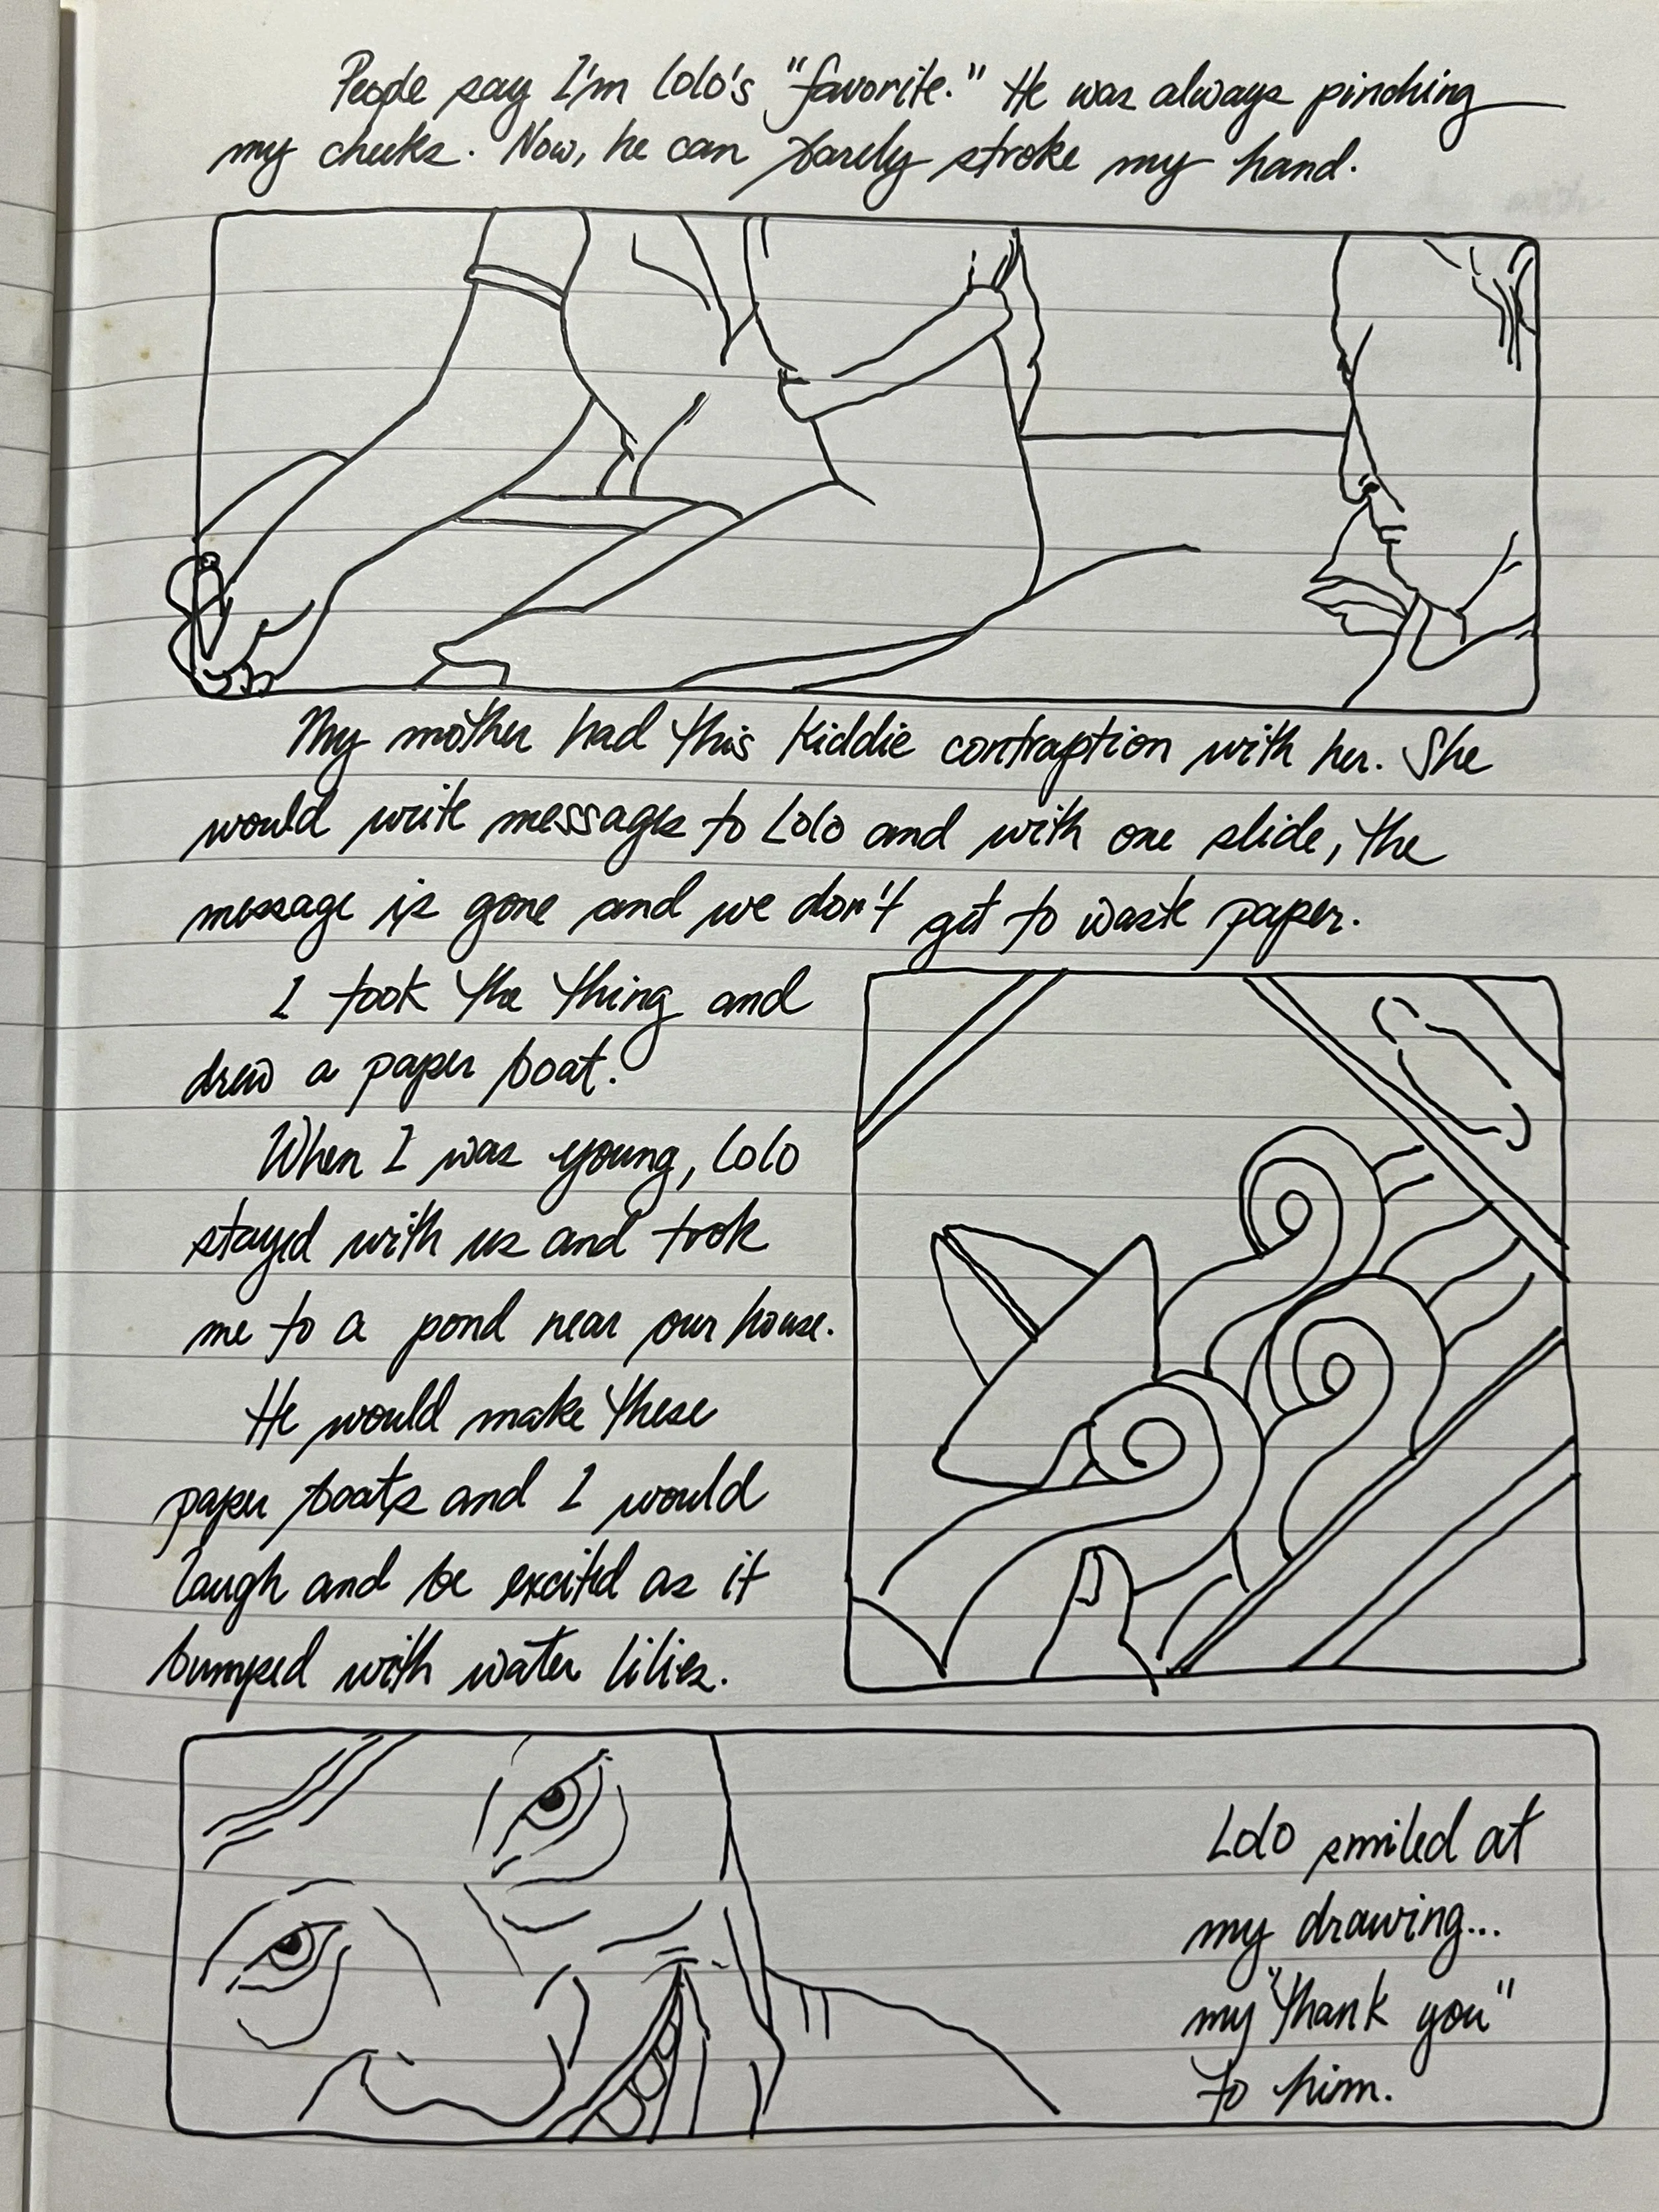 People say I'm Lolo's "favorite." He was always pinching
my cheeks. Now, he can barely stroke my hand.
My mother had this kiddie contraption with her. She
would write messages to Lolo and with one slide, the
message is gone and we don't get to waste paper.
I took the thing and
drew a paper boat.
When I was young, Lolo
stayed with us and took
me to a pond near our house.
He would make these
paper boats and I would
laugh and be excited as it
bumped with water lilies.
Lolo smiled at
my drawing...
my "thank you"
to him.